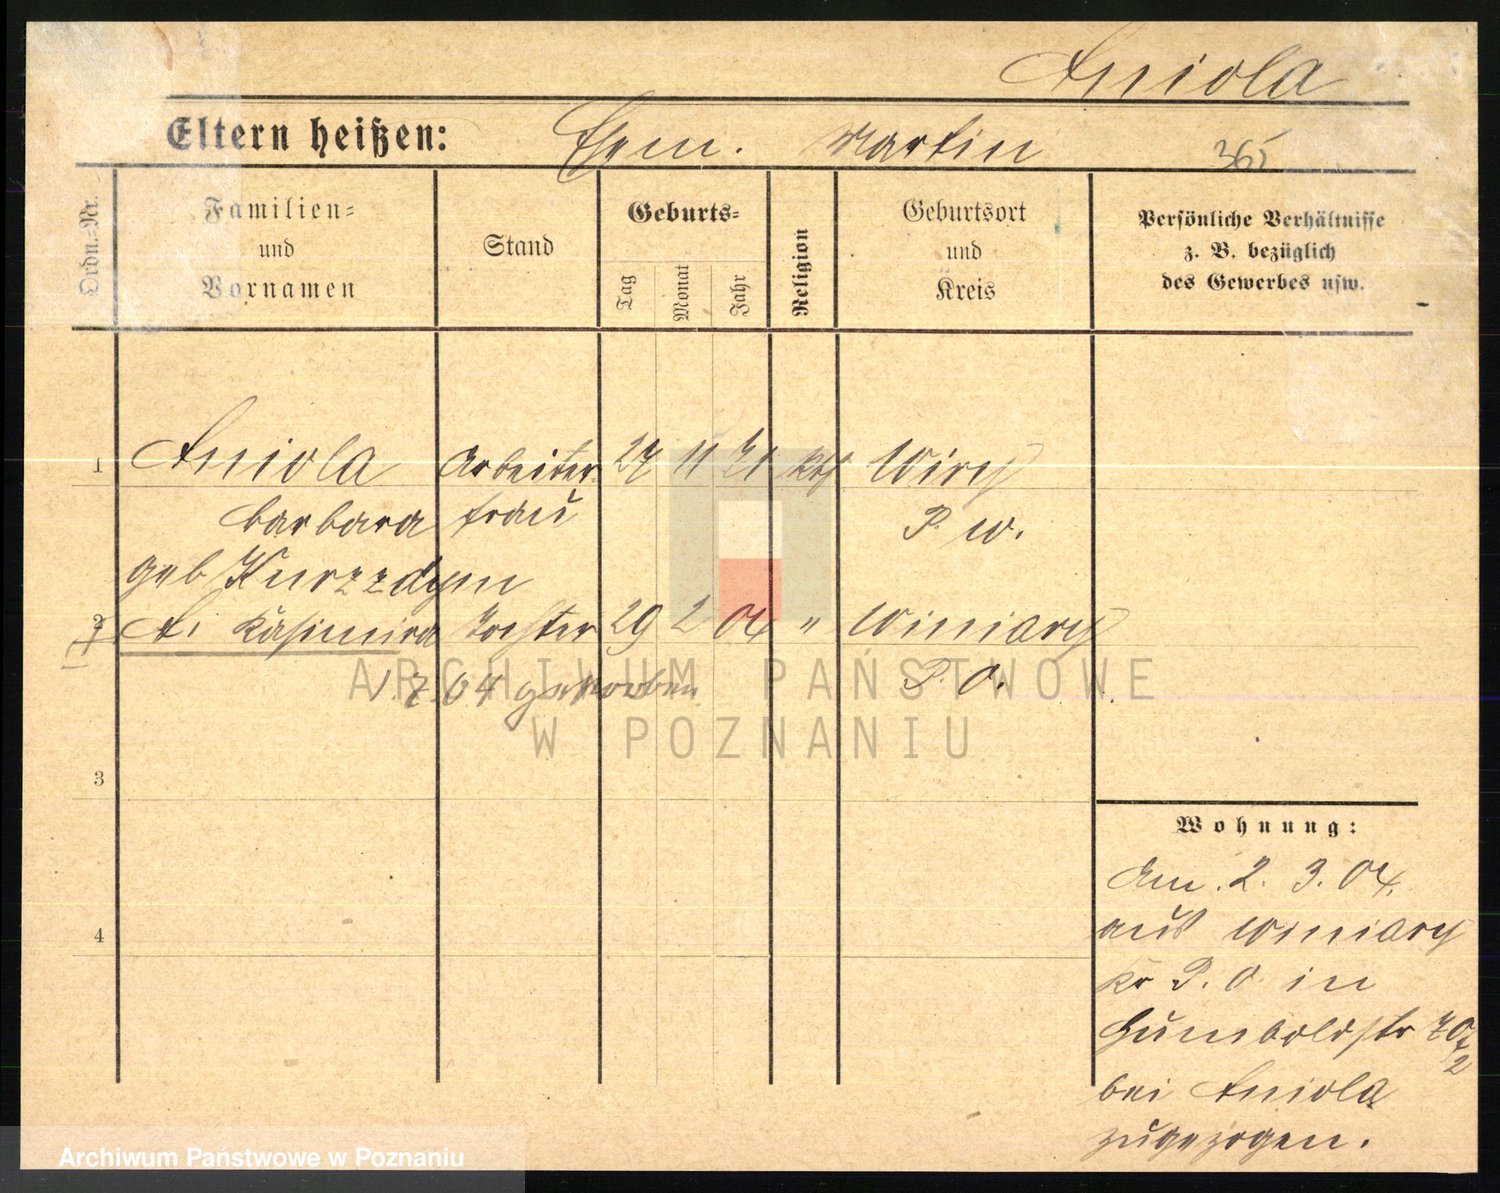 Aniola
Eltern heißen: Ehem. Martin 365
Ordn.=Nr.
Familien=
und
Vornamen
Stand
Geburts=
Tag
Monat
Jahr
Religion
Geburtsort
und
Kreis
Persönliche Verhältnisse
z. B. bezüglich
des Gewerbes usw.
1 Aniola Arbeiter 11 kth Wiry
barbara frau P. W.
geb Kurzzdym
2 A. Kasimira Tochter 29 2 04 " Winiary
1.7.04 gestorben P. O.
3
4
Wohnung:
Am. 2. 3. 04.
aus Winiary
Kr P. O. in
Humboldstr
bei Aniola
zugezogen.
ARCHIWUM PAŃSTWOWE
W POZNANIU
Archiwum Państwowe w Poznaniu